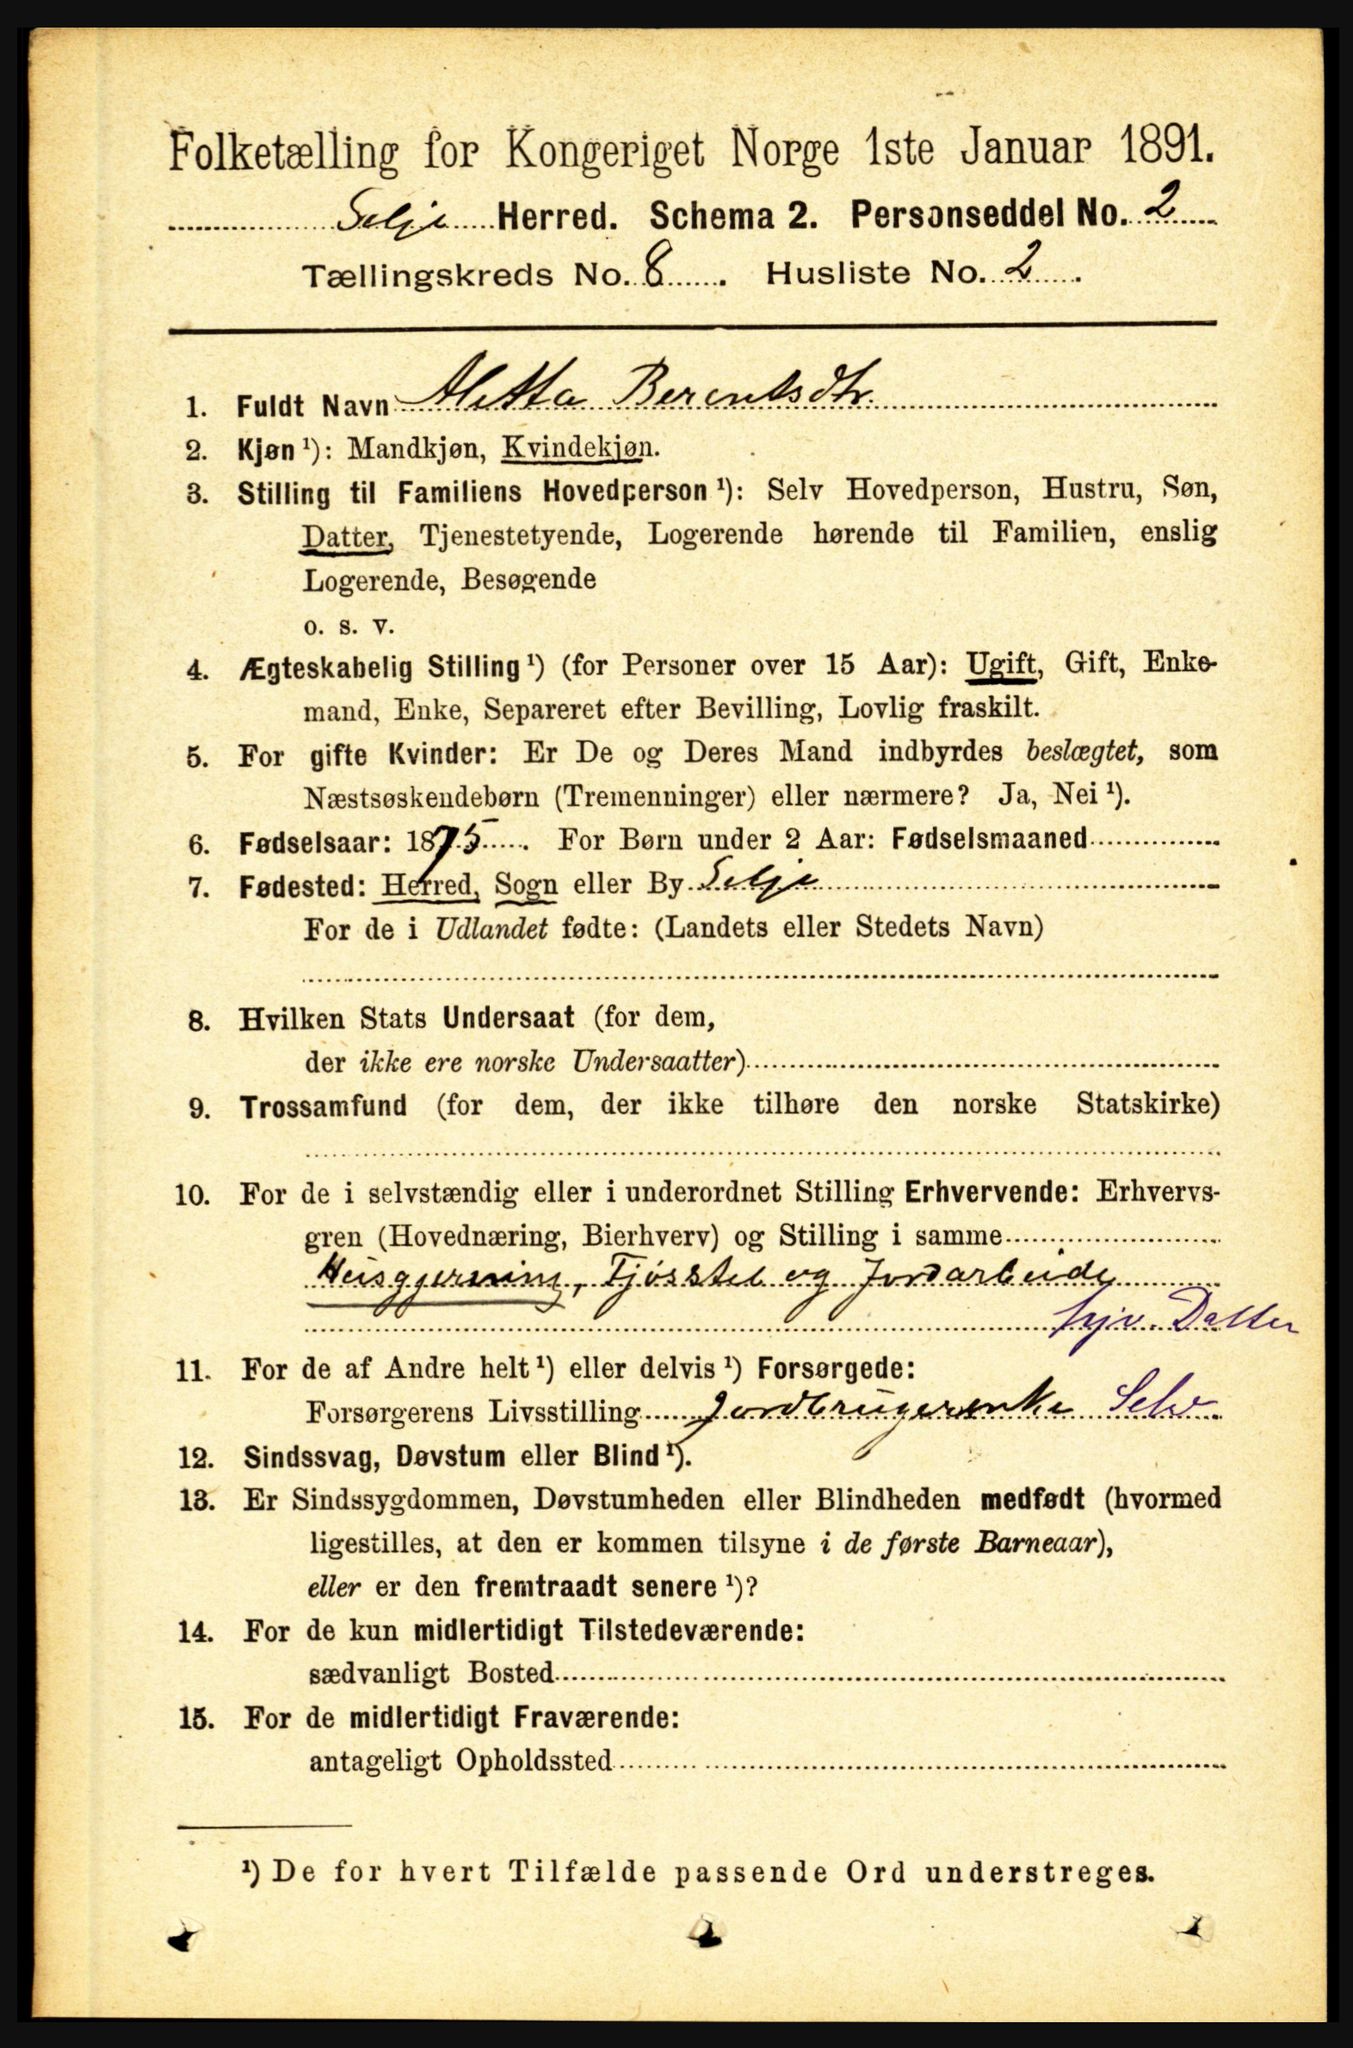 Folketælling for Kongeriget Norge 1ste Januar 1891.
Selje Herred. Schema 2. Personseddel No. 2
Tællingskreds No. 8. Husliste No. 2.
1. Fuldt Navn Aletta Berentsdtr.
2. Kjøn ¹): Mandkjøn, Kvindekjøn.
3. Stilling til Familiens Hovedperson ¹): Selv Hovedperson, Hustru, Søn,
Datter, Tjenestetyende, Logerende hørende til Familien, enslig
Logerende, Besøgende
o. s. v.
4. Ægteskabelig Stilling ¹) (for Personer over 15 Aar): Ugift, Gift, Enke-
mand, Enke, Separeret efter Bevilling, Lovlig fraskilt.
5. For gifte Kvinder: Er De og Deres Mand indbyrdes beslægtet, som
Næstsøskendebørn (Tremenninger) eller nærmere? Ja, Nei ¹).
6. Fødselsaar: 1875. For Børn under 2 Aar: Fødselsmaaned
7. Fødested: Herred, Sogn eller By Selje
For de i Udlandet fødte: (Landets eller Stedets Navn)
8. Hvilken Stats Undersaat (for dem,
der ikke ere norske Undersaatter)
9. Trossamfund (for dem, der ikke tilhøre den norske Statskirke)
10. For de i selvstændig eller i underordnet Stilling Erhvervende: Erhvervs-
gren (Hovednæring, Bierhverv) og Stilling i samme
Husgjerning, Fjøsstel og Jordarbeide
hjv. Datter
11. For de af Andre helt ¹) eller delvis ¹) Forsørgede:
Forsørgerens Livsstilling Jordbrugerenke Selv
12. Sindssvag, Døvstum eller Blind ¹).
13. Er Sindssygdommen, Døvstumheden eller Blindheden medfødt (hvormed
ligestilles, at den er kommen tilsyne i de første Barneaar),
eller er den fremtraadt senere ¹)?
14. For de kun midlertidigt Tilstedeværende:
sædvanligt Bosted
15. For de midlertidigt Fraværende:
antageligt Opholdssted
¹) De for hvert Tilfælde passende Ord understreges.